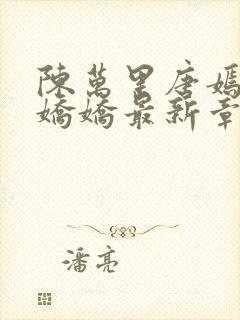 陳萬里唐嫣
嬌嬌最新章
潘亮